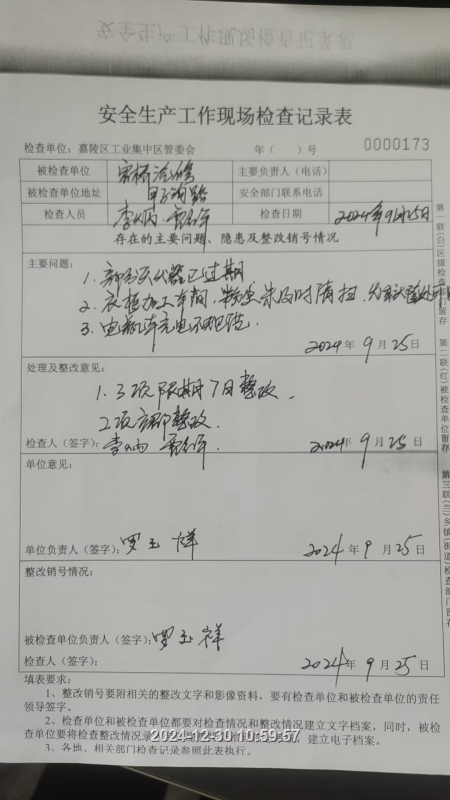 安全生产工作现场检查记录表
检查单位：嘉陵区工业集中区管委会 年（ ）号 0000173
被检查单位 主要负责人（电话）
被检查单位地址 安全部门联系电话
检查人员 检查日期 2024年9月25日
存在的主要问题、隐患及整改销号情况
主要问题：
1. 部分灭火器已过期
2. 加工车间 未及时清扫
3. 电瓶车充电不规范
2024年9月25日
处理及整改意见：
1.3项限期7日整改.
2项立即整改.
检查人（签字）： 2024年9月25日
单位意见：
单位负责人（签字）：罗玉祥 2024年9月25日
整改销号情况：
被检查单位负责人（签字）：罗玉祥
检查人（签字）： 2024年9月25日
填表要求：
1、整改销号要附相关的整改文字和影像资料，要有检查单位和被检查单位的责任
领导签字。
2、检查单位和被检查单位都要对检查情况和整改情况建立文字档案，同时，被检
查单位要将检查整改情况录 ，建立电子档案。
3、各地、相关部门检查记录参照此表执行。
2024-12-30 10:59:57
第一联(白)区级检查部门留存
第二联(红)被检查单位留存
第三联(兰)乡镇(街道)检查部门留存